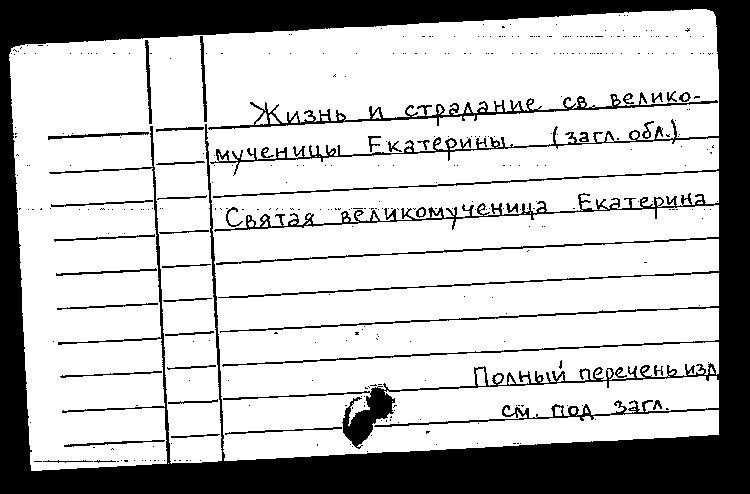 Жизнь и страдание св. велико-
мученицы Екатерины. (загл. обл.)
Святая великомученица Екатерина
Полный перечень изд
см. под загл.